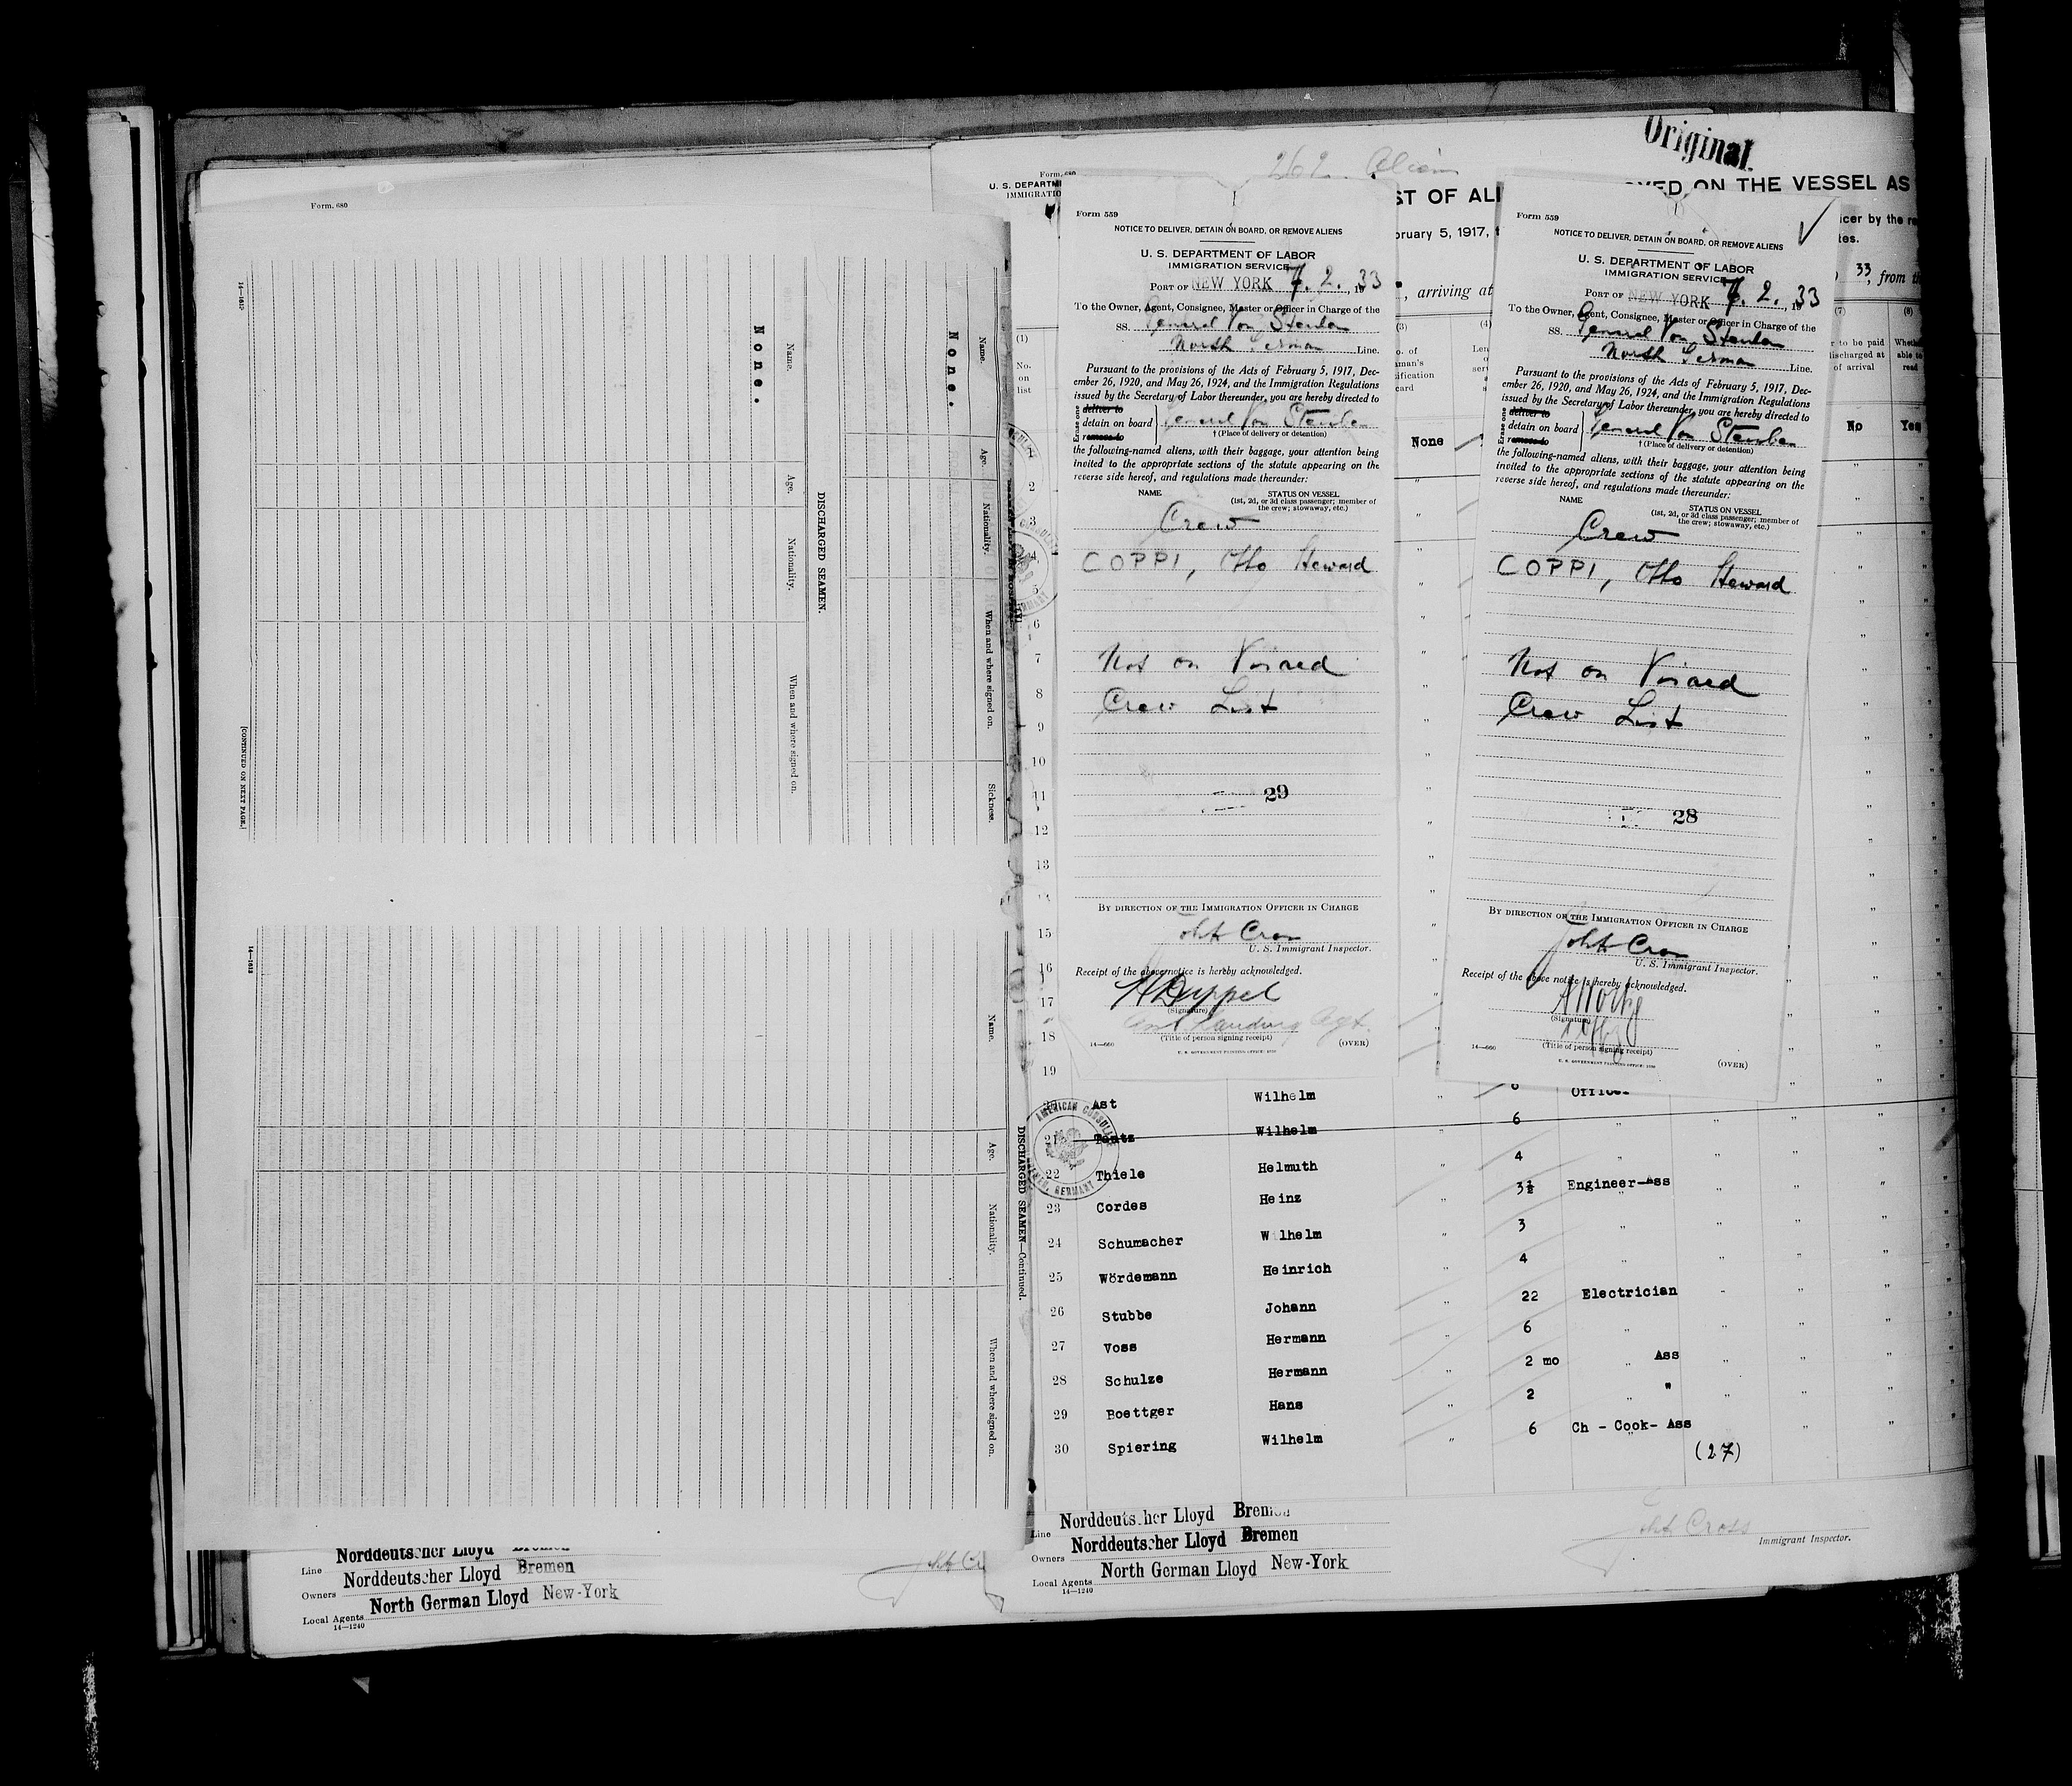 Form. 680
14—1612
None.
Name.
Age.
Nationality.
When and where signed on.
DISCHARGED SEAMEN.
None.
Name.
Age.
Nationality.
When and where signed on.
Sickness.
[CONTINUED ON NEXT PAGE.]
14—1613
Name.
Age.
Nationality.
When and where signed on.
DISCHARGED SEAMEN—Continued.
Norddeutscher Lloyd Bremen
Line
Norddeutscher Lloyd Bremen
Owners
North German Lloyd New-York
Local Agents
14—1240
Original
262 Alien
Form. 680
U. S. DEPARTM
IMMIGRATIO
ST OF ALI
YED ON THE VESSEL AS
bruary 5, 1917,
icer by the re
tes.
, arriving at
33, from th
(1)
No. on list
(3)
(4)
(7)
(8)
None
No
Yes
Form 559
NOTICE TO DELIVER, DETAIN ON BOARD, OR REMOVE ALIENS
U. S. DEPARTMENT OF LABOR
IMMIGRATION SERVICE
PORT OF NEW YORK 7. 2., 1933
To the Owner, Agent, Consignee, Master or Officer in Charge of the
SS. General Von Steuben
North German Line.
Pursuant to the provisions of the Acts of February 5, 1917, Dec-
ember 26, 1920, and May 26, 1924, and the Immigration Regulations
issued by the Secretary of Labor thereunder, you are hereby directed to
Erase one
deliver to
detain on board General Von Steuben
remove to
† (Place of delivery or detention)
the following-named aliens, with their baggage, your attention being
invited to the appropriate sections of the statute appearing on the
reverse side hereof, and regulations made thereunder:
NAME STATUS ON VESSEL
(1st, 2d, or 3d class passenger; member of
the crew; stowaway, etc.)
Crew
COPPI, Otto Steward
Not on Visaed
Crew List
29
BY DIRECTION OF THE IMMIGRATION OFFICER IN CHARGE
Joh A Cross
U. S. Immigrant Inspector.
Receipt of the above notice is hereby acknowledged.
(Signature)
Landing Agt.
(Title of person signing receipt)
14—660 (OVER)
U. S. GOVERNMENT PRINTING OFFICE
Form 559
NOTICE TO DELIVER, DETAIN ON BOARD, OR REMOVE ALIENS
U. S. DEPARTMENT OF LABOR
IMMIGRATION SERVICE
PORT OF NEW YORK 7. 2., 1933
To the Owner, Agent, Consignee, Master or Officer in Charge of the
SS. General Von Steuben
North German Line.
Pursuant to the provisions of the Acts of February 5, 1917, Dec-
ember 26, 1920, and May 26, 1924, and the Immigration Regulations
issued by the Secretary of Labor thereunder, you are hereby directed to
Erase one
deliver to
detain on board General Von Steuben
remove to
† (Place of delivery or detention)
the following-named aliens, with their baggage, your attention being
invited to the appropriate sections of the statute appearing on the
reverse side hereof, and regulations made thereunder:
NAME STATUS ON VESSEL
(1st, 2d, or 3d class passenger; member of
the crew; stowaway, etc.)
Crew
COPPI, Otto Steward
Not on Visaed
Crew List
28
BY DIRECTION OF THE IMMIGRATION OFFICER IN CHARGE
Joh A Cross
U. S. Immigrant Inspector.
Receipt of the above notice is hereby acknowledged.
(Signature)
(Title of person signing receipt)
14—660 (OVER)
U. S. GOVERNMENT PRINTING OFFICE
2
3
4
5
6
7
8
9
10
11
12
13
15
16
17
18
19
AMERICAN CONSULATE BREMEN, GERMANY
Ast Wilhelm
21 Wilhelm " 6 "
22 Thiele Helmuth " 4 "
23 Cordes Heinz " 3½ Engineer-Ass
24 Schumacher Wilhelm " 3 "
25 Wördemann Heinrich 4 "
26 Stubbe Johann " 22 Electrician
27 Voss Hermann 6 "
28 Schulze Hermann " 2 mo " Ass
29 Boettger Hans " 2 " "
30 Spiering Wilhelm " 6 Ch - Cook- Ass
(27)
Norddeutscher Lloyd Bremen
Line
Norddeutscher Lloyd Bremen
Owners
North German Lloyd New-York
Local Agents
14—1240
Joh A Cross
Immigrant Inspector.